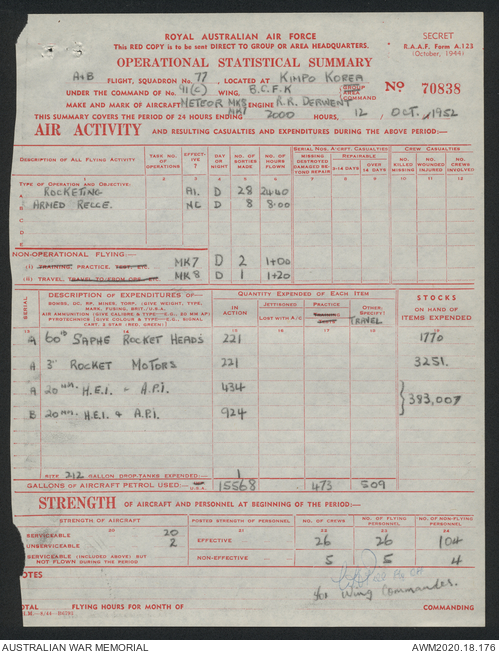 ROYAL AUSTRALIAN AIR FORCE
SECRET
This RED COPY is to be sent DIRECT TO GROUP OR AREA HEADQUARTERS.
R.A.A.F. Form A.123
(October, 1944)
OPERATIONAL STATISTICAL SUMMARY
A+B FLIGHT, SQUADRON No. 77, LOCATED AT KIMPO KOREA
UNDER THE COMMAND OF No. 91(C) WING, B.C.F.K GROUP AREA COMMAND
No 70838
MAKE AND MARK OF AIRCRAFT METEOR MK8 MK7 ENGINE R.R. DERWENT
THIS SUMMARY COVERS THE PERIOD OF 24 HOURS ENDING 2000 HOURS, 12 / OCT. / 1952
AIR ACTIVITY AND RESULTING CASUALTIES AND EXPENDITURES DURING THE ABOVE PERIOD:—
DESCRIPTION OF ALL FLYING ACTIVITY
TASK NO. OF OPERATIONS
EFFECTIVE ?
DAY OR NIGHT
NO. OF SORTIES MADE
NO. OF HOURS FLOWN
SERIAL NOS. A-CRFT. CASUALTIES
CREW CASUALTIES
MISSING DESTROYED DAMAGED BEYOND REPAIR
REPAIRABLE
0-14 DAYS
OVER 14 DAYS
NO. KILLED MISSING
NO. WOUNDED INJURED
NO. CREWS INVOLVED
TYPE OF OPERATION AND OBJECTIVE:
ROCKETING D 28 24.40
ARMED RECCE. D 8 8.00
NON-OPERATIONAL FLYING:—
(i) TRAINING, PRACTICE, TEST, ETC. MK7 D 2 1+00
(ii) TRAVEL, TRAVEL TO/FROM OPS., ETC. MK8 D 1 1+20
SERIAL
DESCRIPTION OF EXPENDITURES OF—
BOMBS, UC. RP. MINES, TORP. (GIVE WEIGHT, TYPE, MARK, FUSING, BRIT./U.S.A.
AIR AMMUNITION (GIVE CALIBRE & TYPE—E.G., 20 MM AP)
PYROTECHNICS (GIVE COLOUR & TYPE—E.G., SIGNAL CART. 2 STAR (RED, GREEN.)
QUANTITY EXPENDED OF EACH ITEM
IN ACTION
JETTISONED
LOST WITH A/C
PRACTICE
OTHER: SPECIFY)
TRAVEL
STOCKS
ON HAND OF ITEMS EXPENDED
A 60lb SAPHE ROCKET HEADS 221 1770
A 3" ROCKET MOTORS 221 3251.
A 20mm. H.E.I. + A.P.I. 434
383,007
B 20mm. H.E.I. & A.P.I. 924
212 GALLON DROP-TANKS EXPENDED:— 1
GALLONS OF AIRCRAFT PETROL USED:— 15568 473 509
STRENGTH OF AIRCRAFT AND PERSONNEL AT BEGINNING OF THE PERIOD:—
STRENGTH OF AIRCRAFT
POSTED STRENGTH OF PERSONNEL
NO. OF CREWS
NO. OF FLYING PERSONNEL
NO. OF NON-FLYING PERSONNEL
SERVICEABLE 20
UNSERVICEABLE 2
EFFECTIVE 26 26 104
SERVICEABLE (INCLUDED ABOVE) BUT NOT FLOWN DURING THE PERIOD
NON-EFFECTIVE 5 5 4
NOTES
for Wing Commander.
TOTAL FLYING HOURS FOR MONTH OF
COMMANDING
AUSTRALIAN WAR MEMORIAL
AWM2020.18.176